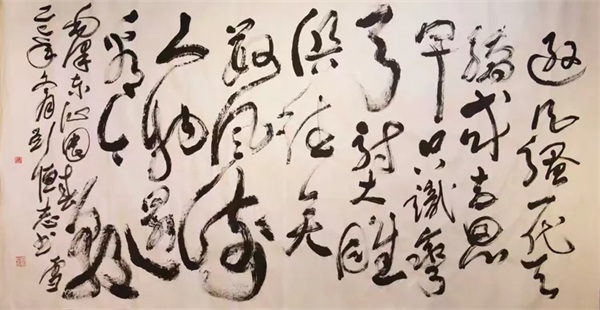 遜风骚一代天
骄成吉思
汗只識彎
弓射大雕
俱往矣
数风流
人物還
看今朝
毛澤东沁園春雪
己亥冬月彭恒志书